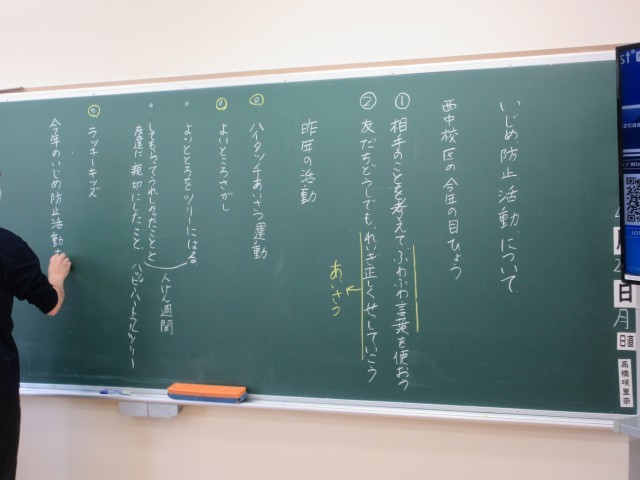 いじめ防止活動について
西中校区の今年の目ひょう
① 相手のことを考えてふわふわ言葉を使おう
② 友だちどうしでも、れいぎ正しくせっしていこう
あいさつ
昨年の活動
ハイタッチあいさつ運動
よいところさがし
・よいところをツリーにはる。
・してもらってうれしかったことと
友達に親切にしたこと、
人けん週間
ハッピーハートフルツリー
ラッキーキッズ
今年のいじめ防止活動
月
日
月
日直
高橋咲里奈